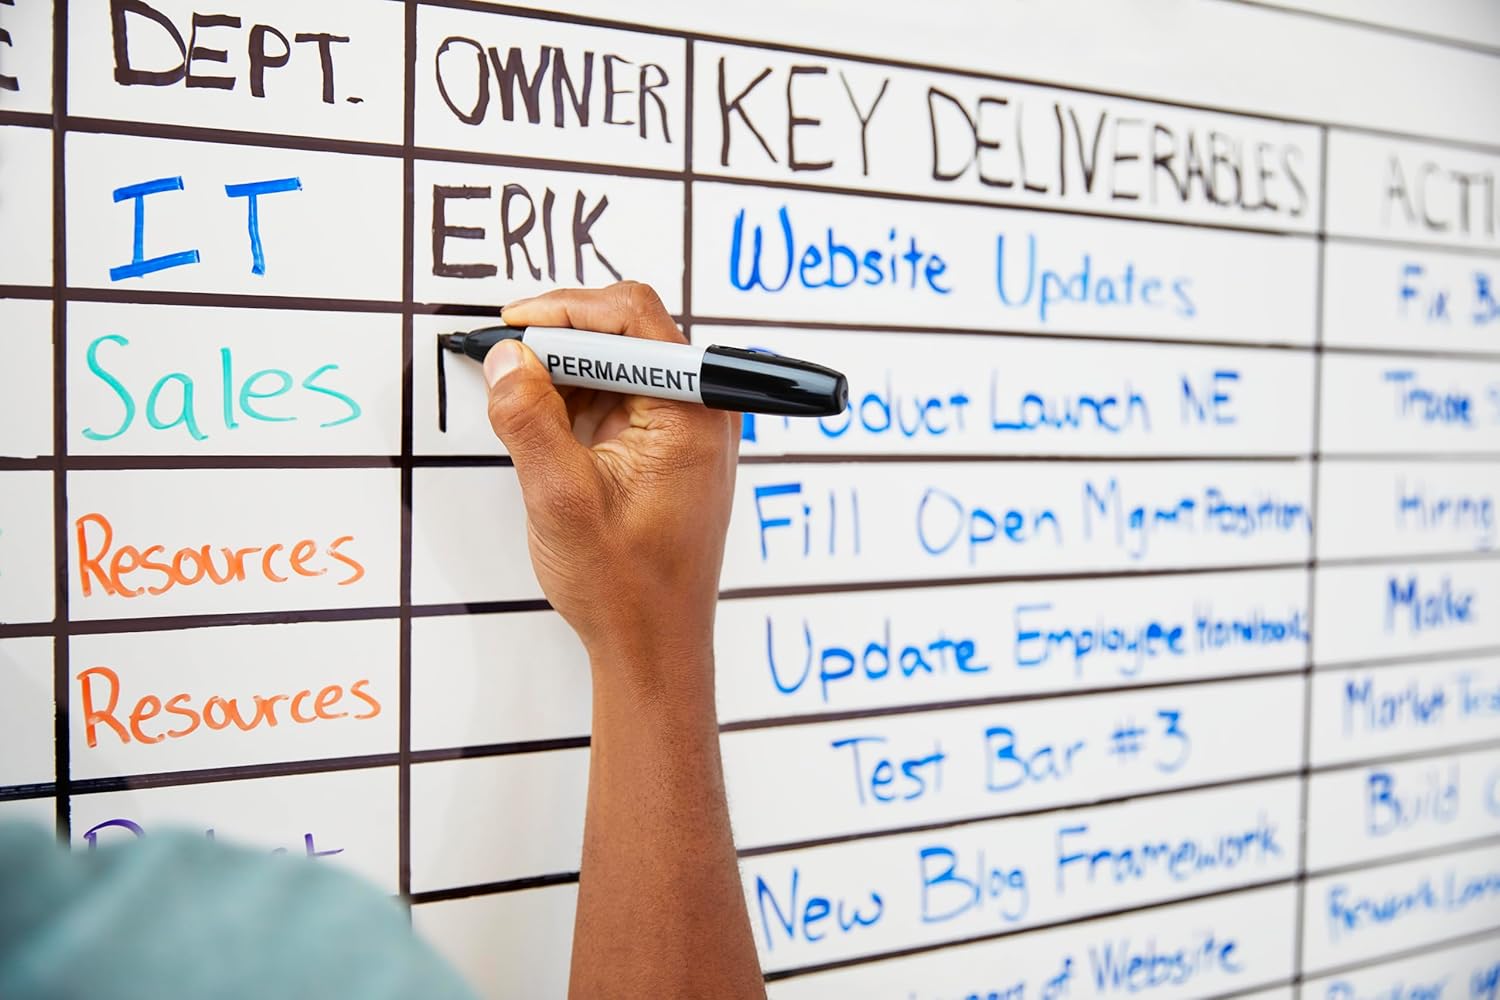 DEPT. OWNER KEY DELIVERABLES
IT ERIK Website Updates Fix
Sales PERMANENT Product Launch NE Trade
Resources Fill Open Mgmt Position Hiring
Resources Update Employee Handbook Make
Test Bar #3 Market
New Blog Framework Build
of Website